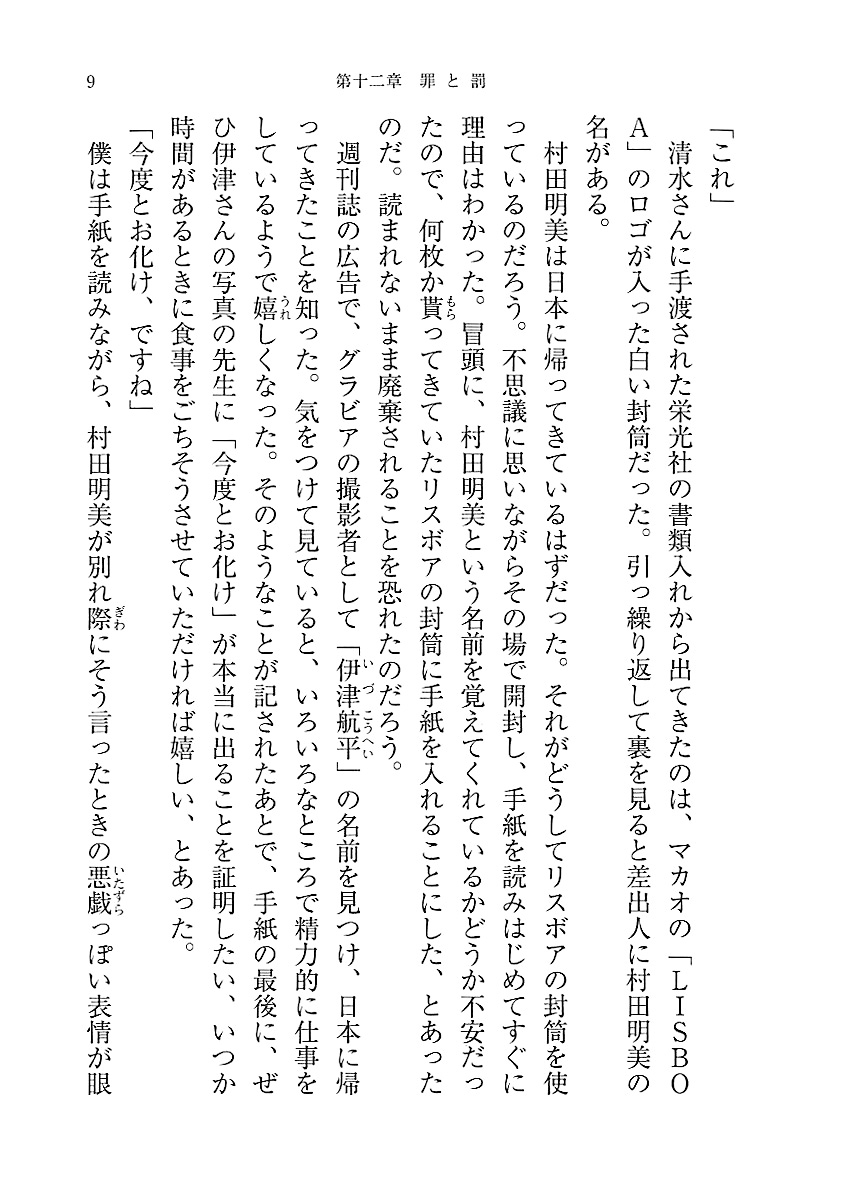 9
第十二章 罪と罰
「これ」
清水さんに手渡された栄光社の書類入れから出てきたのは、マカオの「LISBO
A」のロゴが入った白い封筒だった。引っ繰り返して裏を見ると差出人に村田明美の
名がある。
村田明美は日本に帰ってきているはずだった。それがどうしてリスボアの封筒を使
っているのだろう。不思議に思いながらその場で開封し、手紙を読みはじめてすぐに
理由はわかった。冒頭に、村田明美という名前を覚えてくれているかどうか不安だっ
たので、何枚か貰ってきていたリスボアの封筒に手紙を入れることにした、とあった
のだ。読まれないまま廃棄されることを恐れたのだろう。
週刊誌の広告で、グラビアの撮影者として「伊津航平」の名前を見つけ、日本に帰
ってきたことを知った。気をつけて見ていると、いろいろなところで精力的に仕事を
しているようで嬉しくなった。そのようなことが記されたあとで、手紙の最後に、ぜ
ひ伊津さんの写真の先生に「今度とお化け」が本当に出ることを証明したい、いつか
時間があるときに食事をごちそうさせていただければ嬉しい、とあった。
「今度とお化け、ですね」
僕は手紙を読みながら、村田明美が別れ際にそう言ったときの悪戯っぽい表情が眼